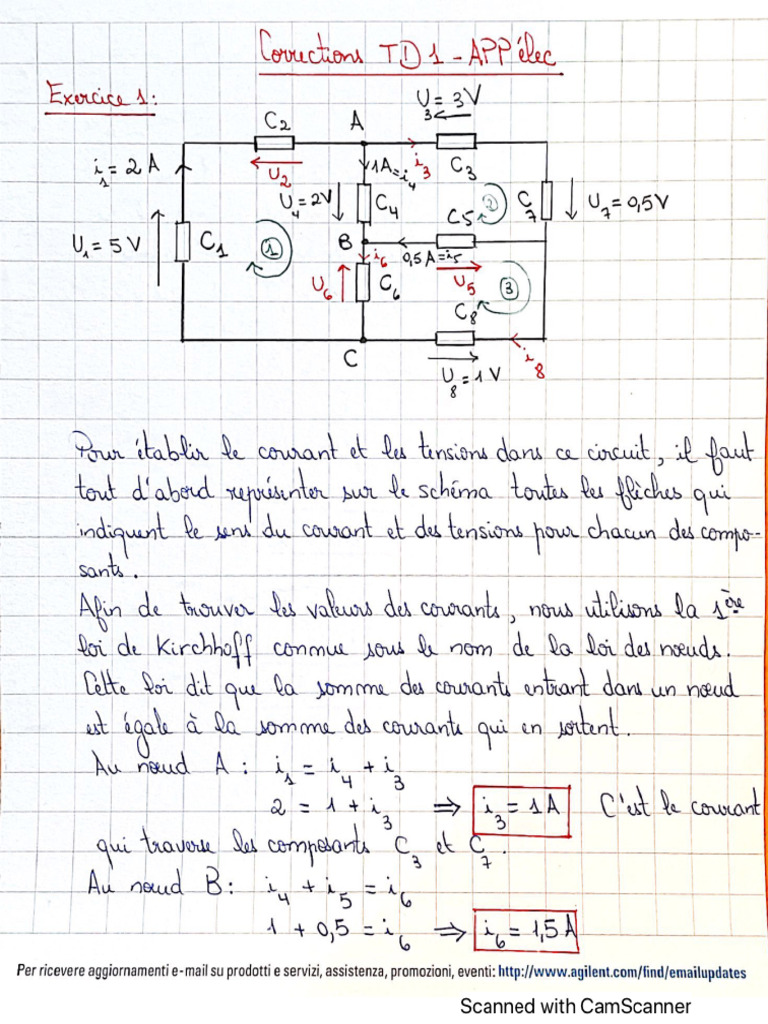 Corrections TD1 - APP élec
Exercice 1:
U₃ = 3V
C₂
A
i₁ = 2 A
U₂
1A = i₄
i₃
C₃
U₄ = 2V
C₄
C₅
②
C₇
U₇ = 0,5V
U₁ = 5V
C₁
①
B
i₆
0,5A = i₅
U₆
C₆
U₅
③
C₈
C
U₈ = 1V
i₈
Pour établir le courant et les tensions dans ce circuit, il faut
tout d'abord représenter sur le schéma toutes les flèches qui
indiquent le sens du courant et des tensions pour chacun des compo-
sants.
Afin de trouver les valeurs des courants, nous utilisons la 1ère
loi de Kirchhoff connue sous le nom de la loi des nœuds.
Cette loi dit que la somme des courants entrant dans un nœud
est égale à la somme des courants qui en sortent.
Au nœud A : i₁ = i₄ + i₃
2 = 1 + i₃ ⟹ i₃ = 1A C'est le courant
qui traverse les composants C₃ et C₇.
Au nœud B: i₄ + i₅ = i₆
1 + 0,5 = i₆ ⟹ i₆ = 1,5 A
Per ricevere aggiornamenti e-mail su prodotti e servizi, assistenza, promozioni, eventi: http://www.agilent.com/find/emailupdates
Scanned with CamScanner